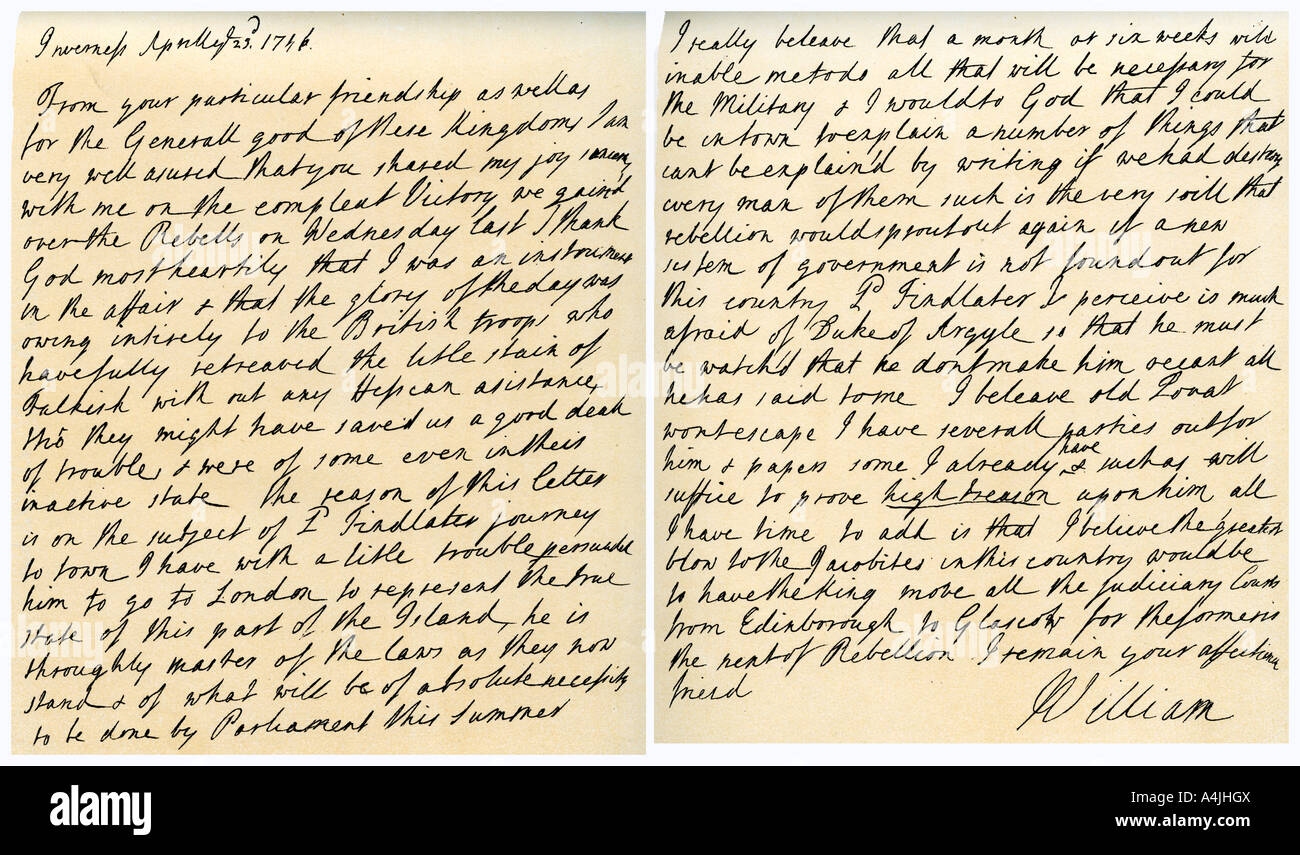 Inverness Aprill ye 23d. 1746.
From your particular friendship as well as
for the Generall good of these Kingdoms I am
very well asured that you shared my joy
with me on the compleat Victory we gained
over the Rebells on Wednesday last I thank
God most heartily that I was an instrument
in the affair & that the glory of the day was
owing intirely to the British troops who
have fully retreaved the litle stain of
Falkirk with out any Hessean asistance,
tho they might have saved us a good deal
of trouble, & were of some even in their
inactive state The reason of this letter
is on the subject of Ld Findlater journey
to town I have with a litle trouble persuaded
him to go to London to represent the true
state of this part of the Island, he is
throughly master of the laws as they now
stand & of what will be of absolute necessity
to be done by Parliament this Summer
I really beleave that a month or six weeks will
inable me to do all that will be necessary for
the Military & I would to God that I could
be in town to explain a number of things that
cant be explain'd by writing if we had destroy
every man of them such is the very soill that
rebellion would sprout out again if a new
sistem of government is not found out for
this country Ld Findlater I perceive is much
afraid of Duke of Argyle so that he must
be watch'd that he dont make him recant all
he has said to me I beleave old Lovat
wont escape I have severall parties out for
him & papers some I already have & such as will
suffice to prove high treason upon him all
I have time to add is that I believe the greatest
blow to the Jacobites in this country would be
to have the King move all the Judiciary Courts
from Edinborough to Glascow for the former is
the nent of Rebellion I remain your affectionate
friend
William
alamy
Image ID: A4JHGX
www.alamy.com